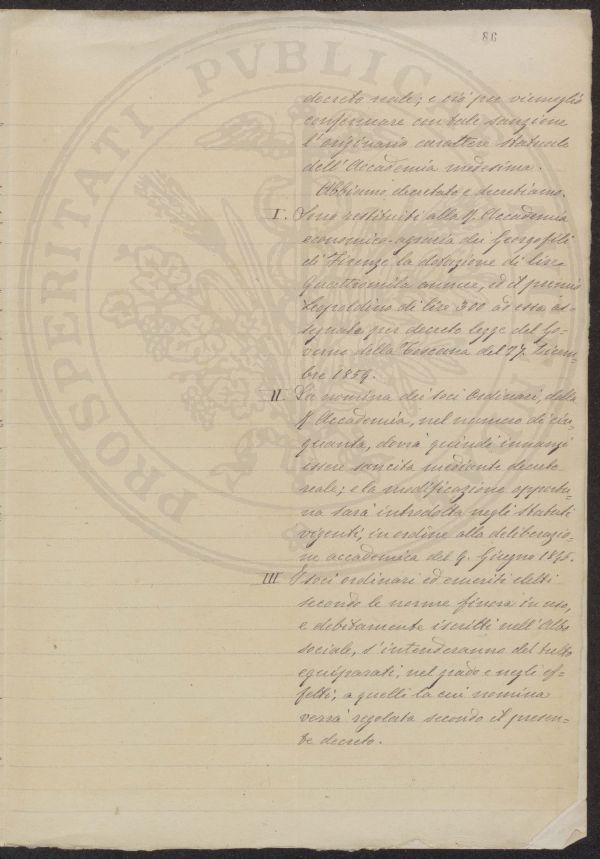 86
PROSPERITATI PVBLIC
decreto reale; e ciò per viemeglio
confermare con tale sanzione
l'originario carattere statuale
dell'Accademia medesima.
Abbiamo decretato e decretiamo.
I. Sono restituiti alla R. Accademia
economico-agraria dei Georgofili
di Firenze la dotazione di lire
quattromila annue, ed il premio
Leopoldino di lire 300 ad essa as=
segnato per decreto legge del Go=
verno della Toscana del 27. Dicem=
bre 1859.
II. La nomina dei soci Ordinari, della
R. Accademia, nel numero di cin=
quanta, dovrà quindi innanzi
essere sancita mediante decreto
reale; e la modificazione opportu=
na sarà introdotta negli Statuti
vigenti, in ordine alla deliberazio=
ne accademica del 9. Giugno 1895.
III I soci ordinari ed emeriti eletti
secondo le norme finora in uso,
e debitamente iscritti nell'Albo
sociale, s'intenderanno del tutto
equiparati, nel grado e negli ef=
fetti, a quelli la cui nomina
verrà regolata secondo il presen=
te decreto.